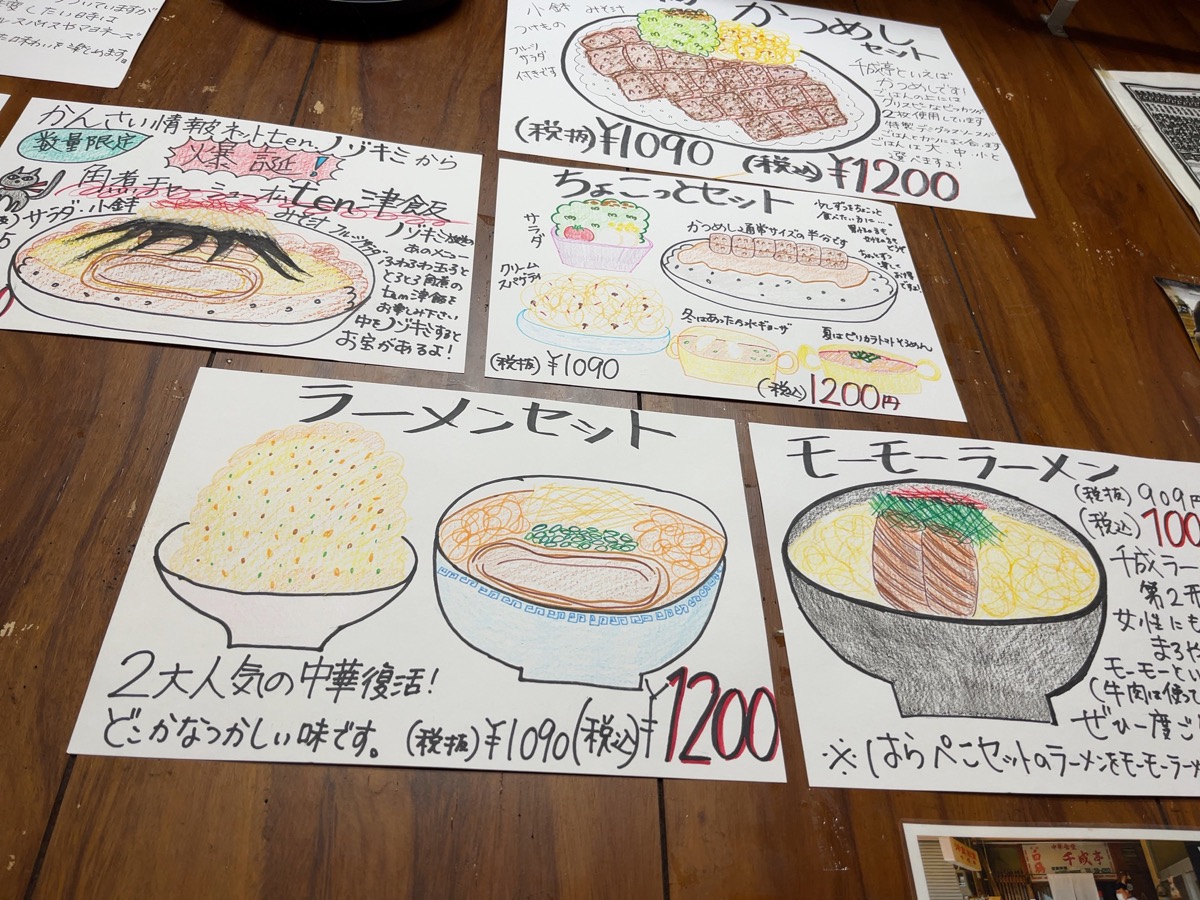 小鉢 みそ汁
つけもの
フルーツ
サラダ
付きです
かつめし
セット
千成亭といえば
かつめしです!
ごはんの上には
2枚使用しています
ごはんは大、中、小と
選べますよ!
(税抜)¥1090 (税込)¥1200
かんさい情報ネットten.ノゾキミから
数量限定
爆誕!
角煮チャーシューオンten津飯
サラダ・小鉢
みそ汁
ノゾキミ
あのメニュー
ふわふわ玉子と
とろとろ角煮の
ten津飯を
お楽しみ下さい
中をノゾキミすると
お宝があるよ!
ちょこっとセット
少しずつをちょこっと
食べたい方に…
サラダ
かつめし通常サイズの半分です
クリーム
スパゲティ
冬はあったか水ギョーザ
夏はピリカラトマトそうめん
(税抜)¥1090
(税込)1200円
ラーメンセット
2大人気の中華復活!
どこかなつかしい味です。(税抜)¥1090(税込)¥1200
モーモーラーメン
(税抜)909円
(税込)100
千成ラー
第2弔
女性にも
まろや
モーモーとい
(牛肉は使っ
ぜひ一度ご
※はらぺこセットのラーメンをモーモーラーメ
千成亭